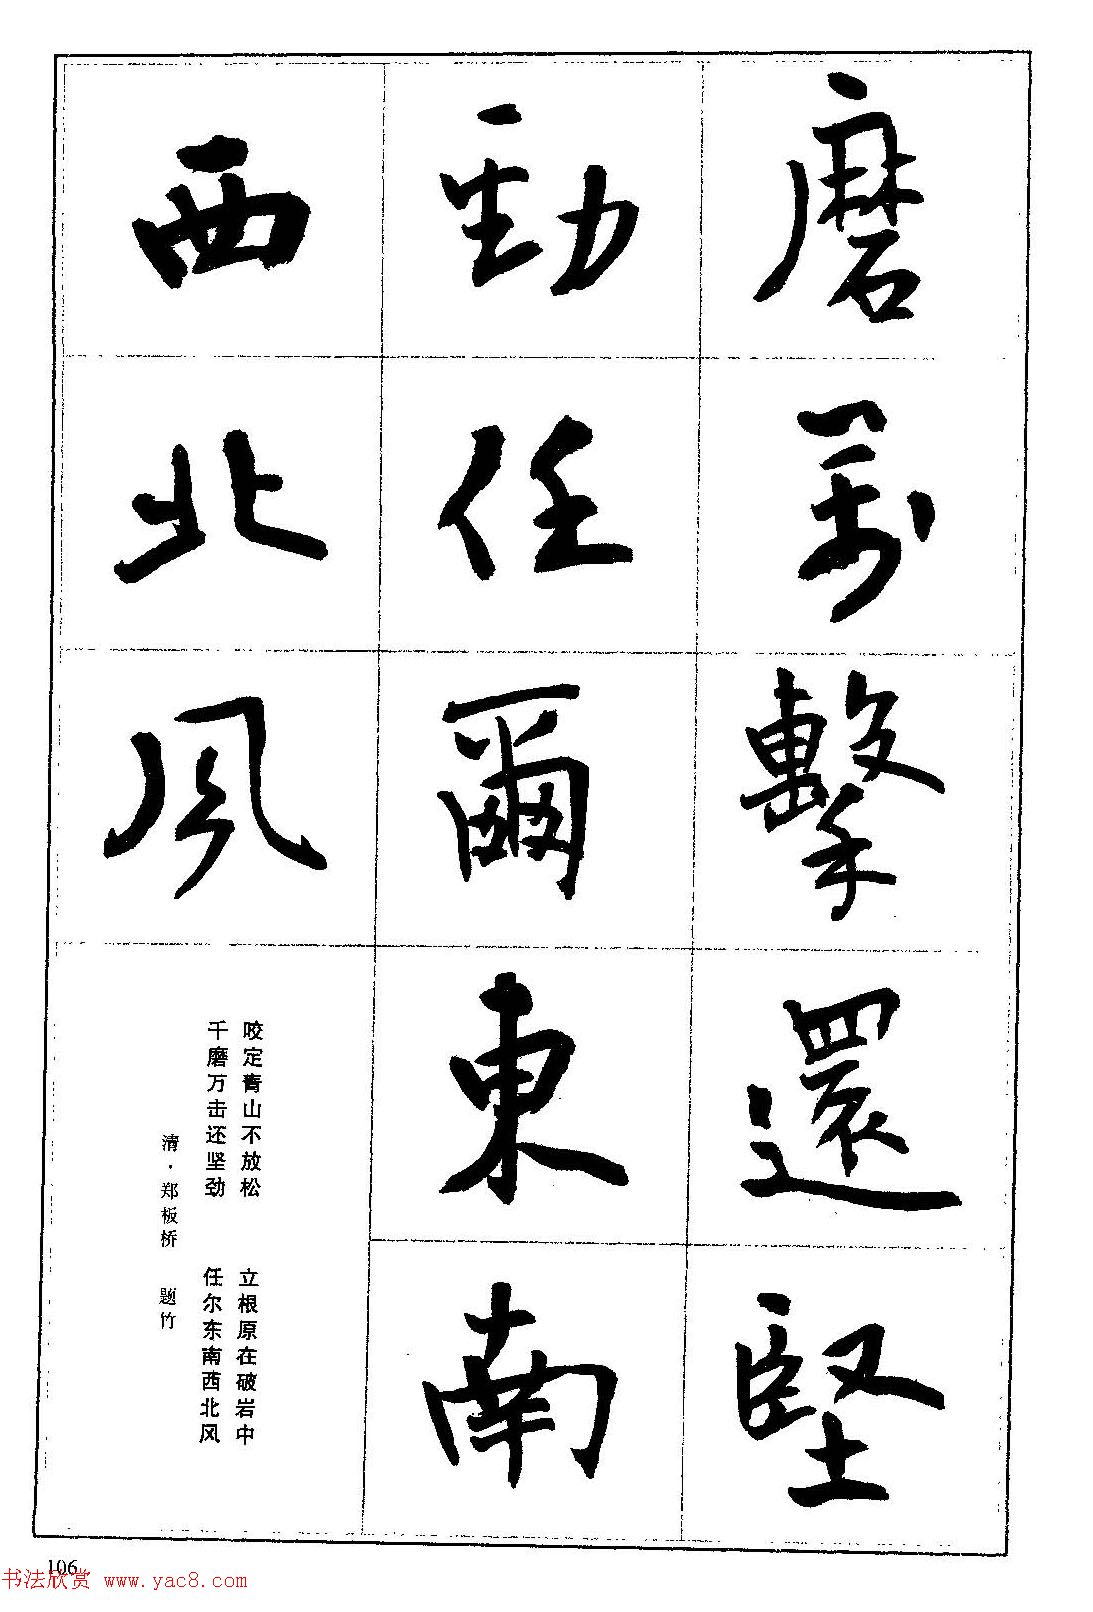 磨萬擊還堅
勁任爾東南
西北風
咬定青山不放松 立根原在破岩中
千磨万击还坚劲 任尔东南西北风
清·郑板桥 题竹
106
书法欣赏 www.yac8.com